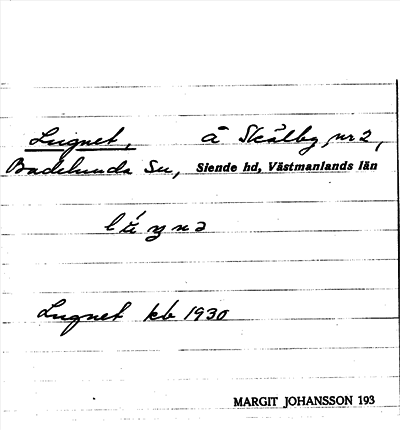 Lugnet, å Skälby nr 2,
Badelunda Sn, Siende hd, Västmanlands län
Lugnet kb 1930
MARGIT JOHANSSON 193